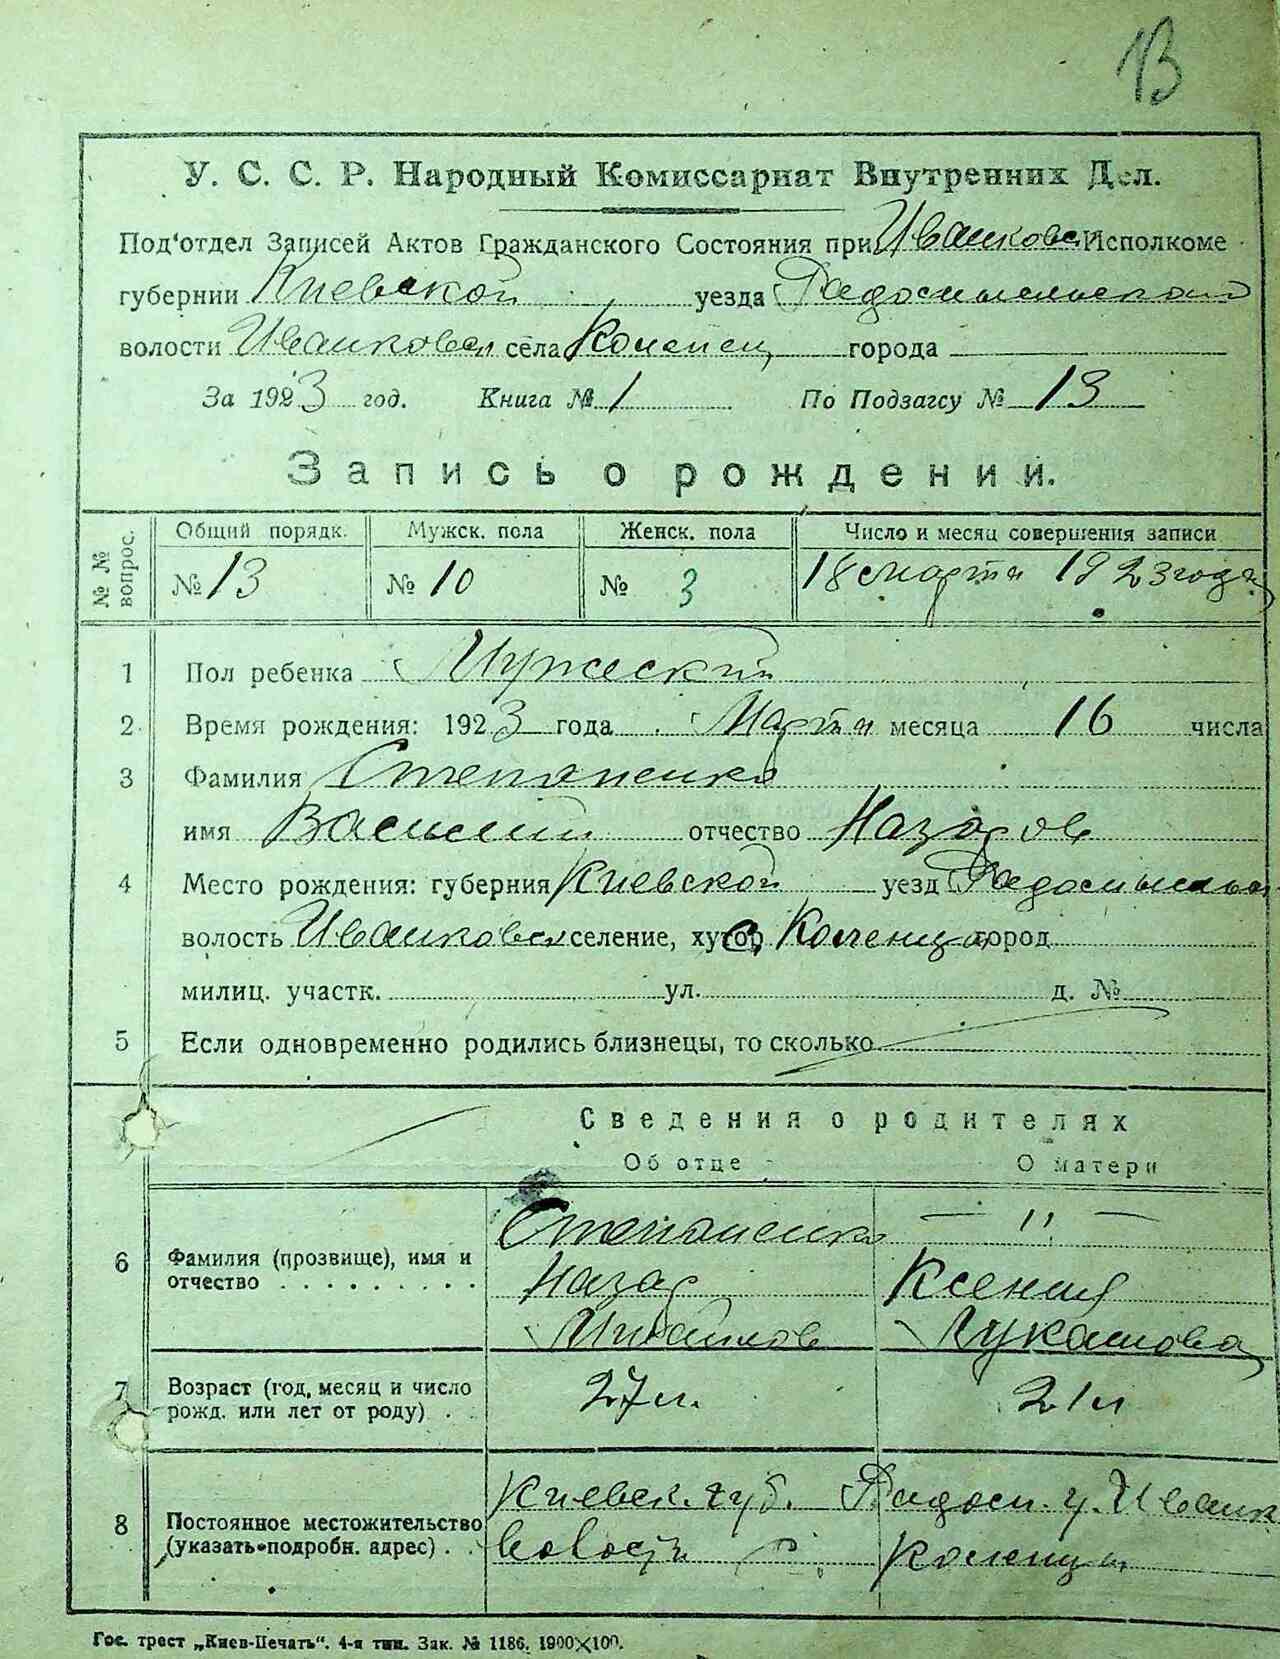 13
У. С. С. Р. Народный Комиссариат Внутренних Дел.
Под'отдел Записей Актов Гражданского Состояния при Иванковс. Исполкоме
губернии Киевской уезда Радомысльской
волости Иванковск села Коленец города
За 1923 год. Книга № 1 По Подзагсу № 13
Запись о рождении.
№ № вопрос. Общий порядк. Мужск. пола Женск. пола Число и месяц совершения записи
№ 13 № 10 № 3 18 марта 1923 года
1 Пол ребенка Мужеский
2 Время рождения: 1923 года Марта месяца 16 числа
3 Фамилия Степаненко
имя Василий отчество Назаров
4 Место рождения: губерния Киевской уезд
волость Иванковск селение, хутор с. Коленцы город
милиц. участк. ул. д. №
5 Если одновременно родились близнецы, то сколько
Сведения о родителях
Об отце О матери
6 Фамилия (прозвище), имя и отчество Степаненко — " —
Назар Ксения
Михайлов Лукашова
7 Возраст (год, месяц и число рожд. или лет от роду) 27 л. 21 л
8 Постоянное местожительство (указать подробн. адрес) Киевск. губ. Радом. у. Иванк
волость с. Коленцы
Гос. трест „Киев-Печать“. 4-я тип. Зак. № 1186. 1900×100.